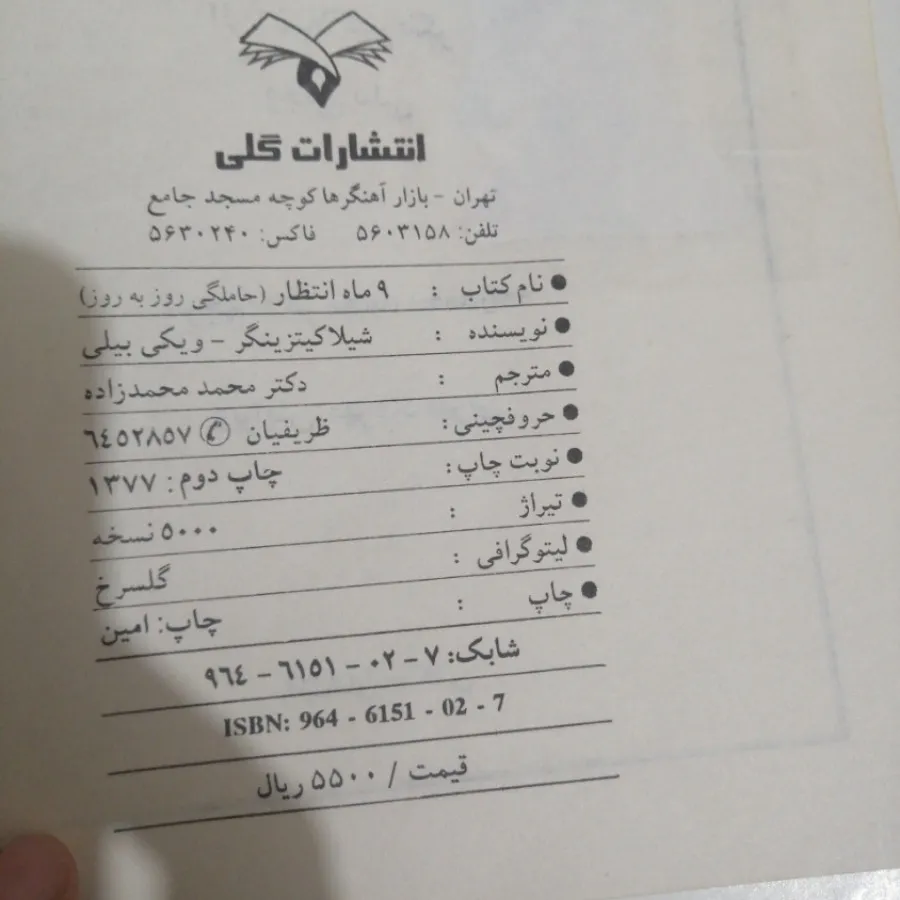 انتشارات گلی
تهران - بازار آهنگرها کوچه مسجد جامع
تلفن: ۵۶۰۳۱۵۸ فاکس: ۵۶۳۰۲۴۰
● نام کتاب : ۹ ماه انتظار (حاملگی روز به روز)
● نویسنده : شیلاکیتزینگر - ویکی بیلی
● مترجم : دکتر محمد محمدزاده
● حروفچینی: ظریفیان ✆ ٦٤٥٢٨٥٧
● نوبت چاپ: چاپ دوم: ۱۳۷۷
● تیراژ : ۵۰۰۰ نسخه
● لیتوگرافی : گلسرخ
● چاپ : چاپ: امین
شابک: ۷ - ۰۲ - ٦١٥١ - ٩٦٤
ISBN: 964 - 6151 - 02 - 7
قیمت / ۵۵۰۰ ریال